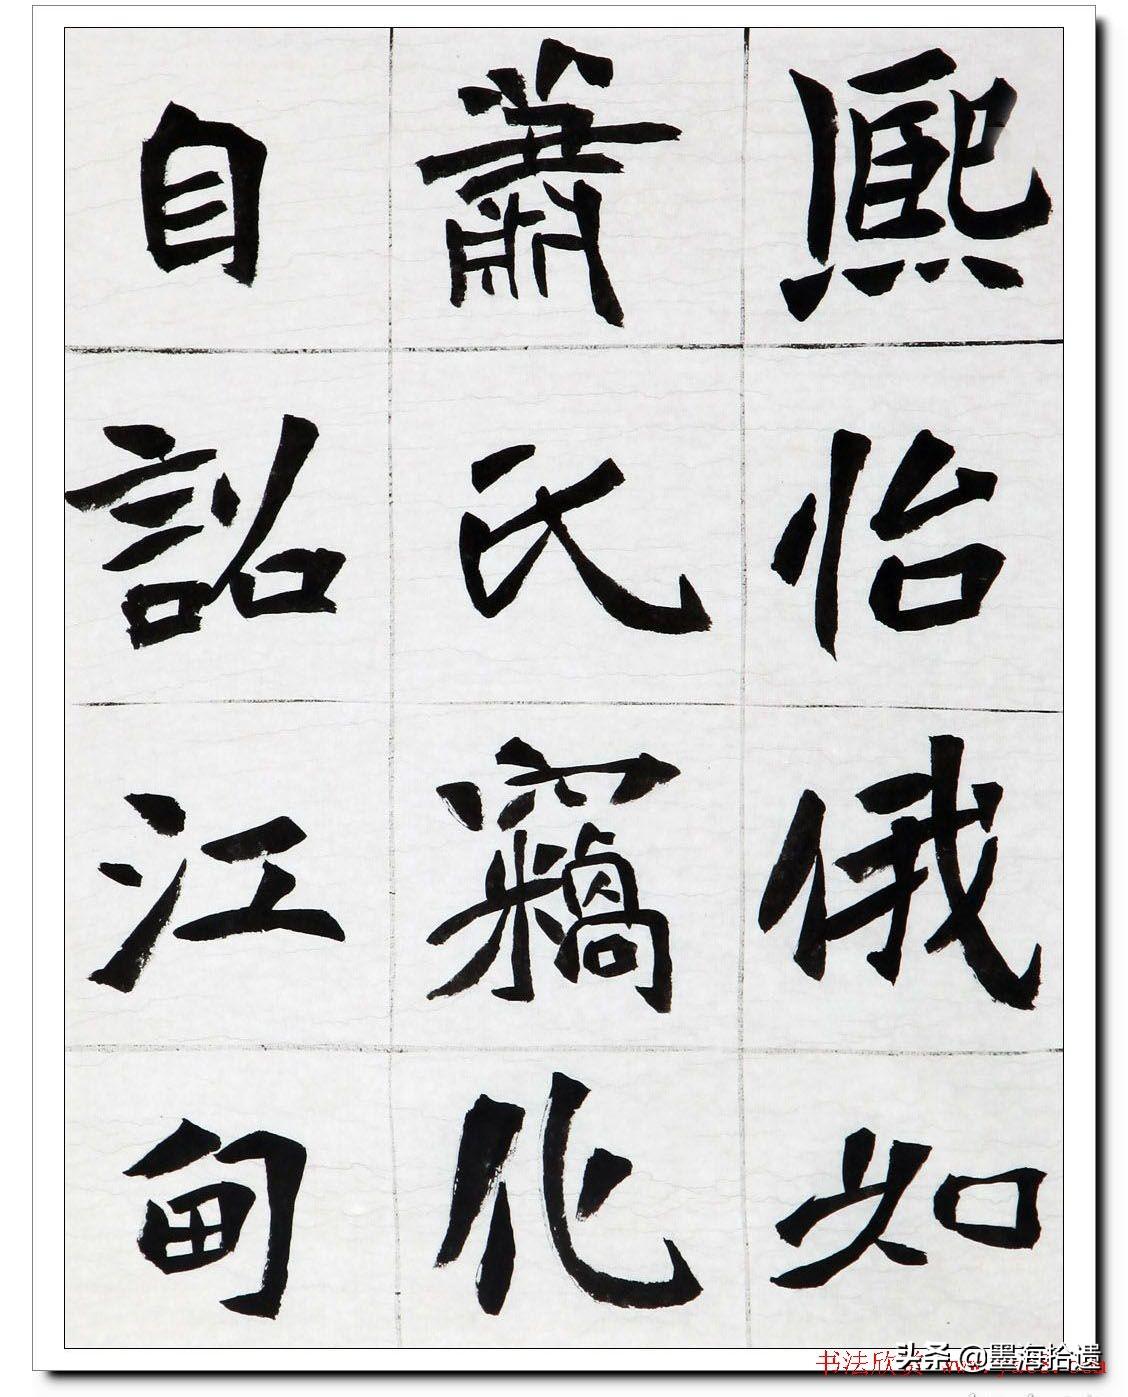 熙怡俄如
蕭氏竊化
自詔江甸
书法欣
头条 @墨海拾遗